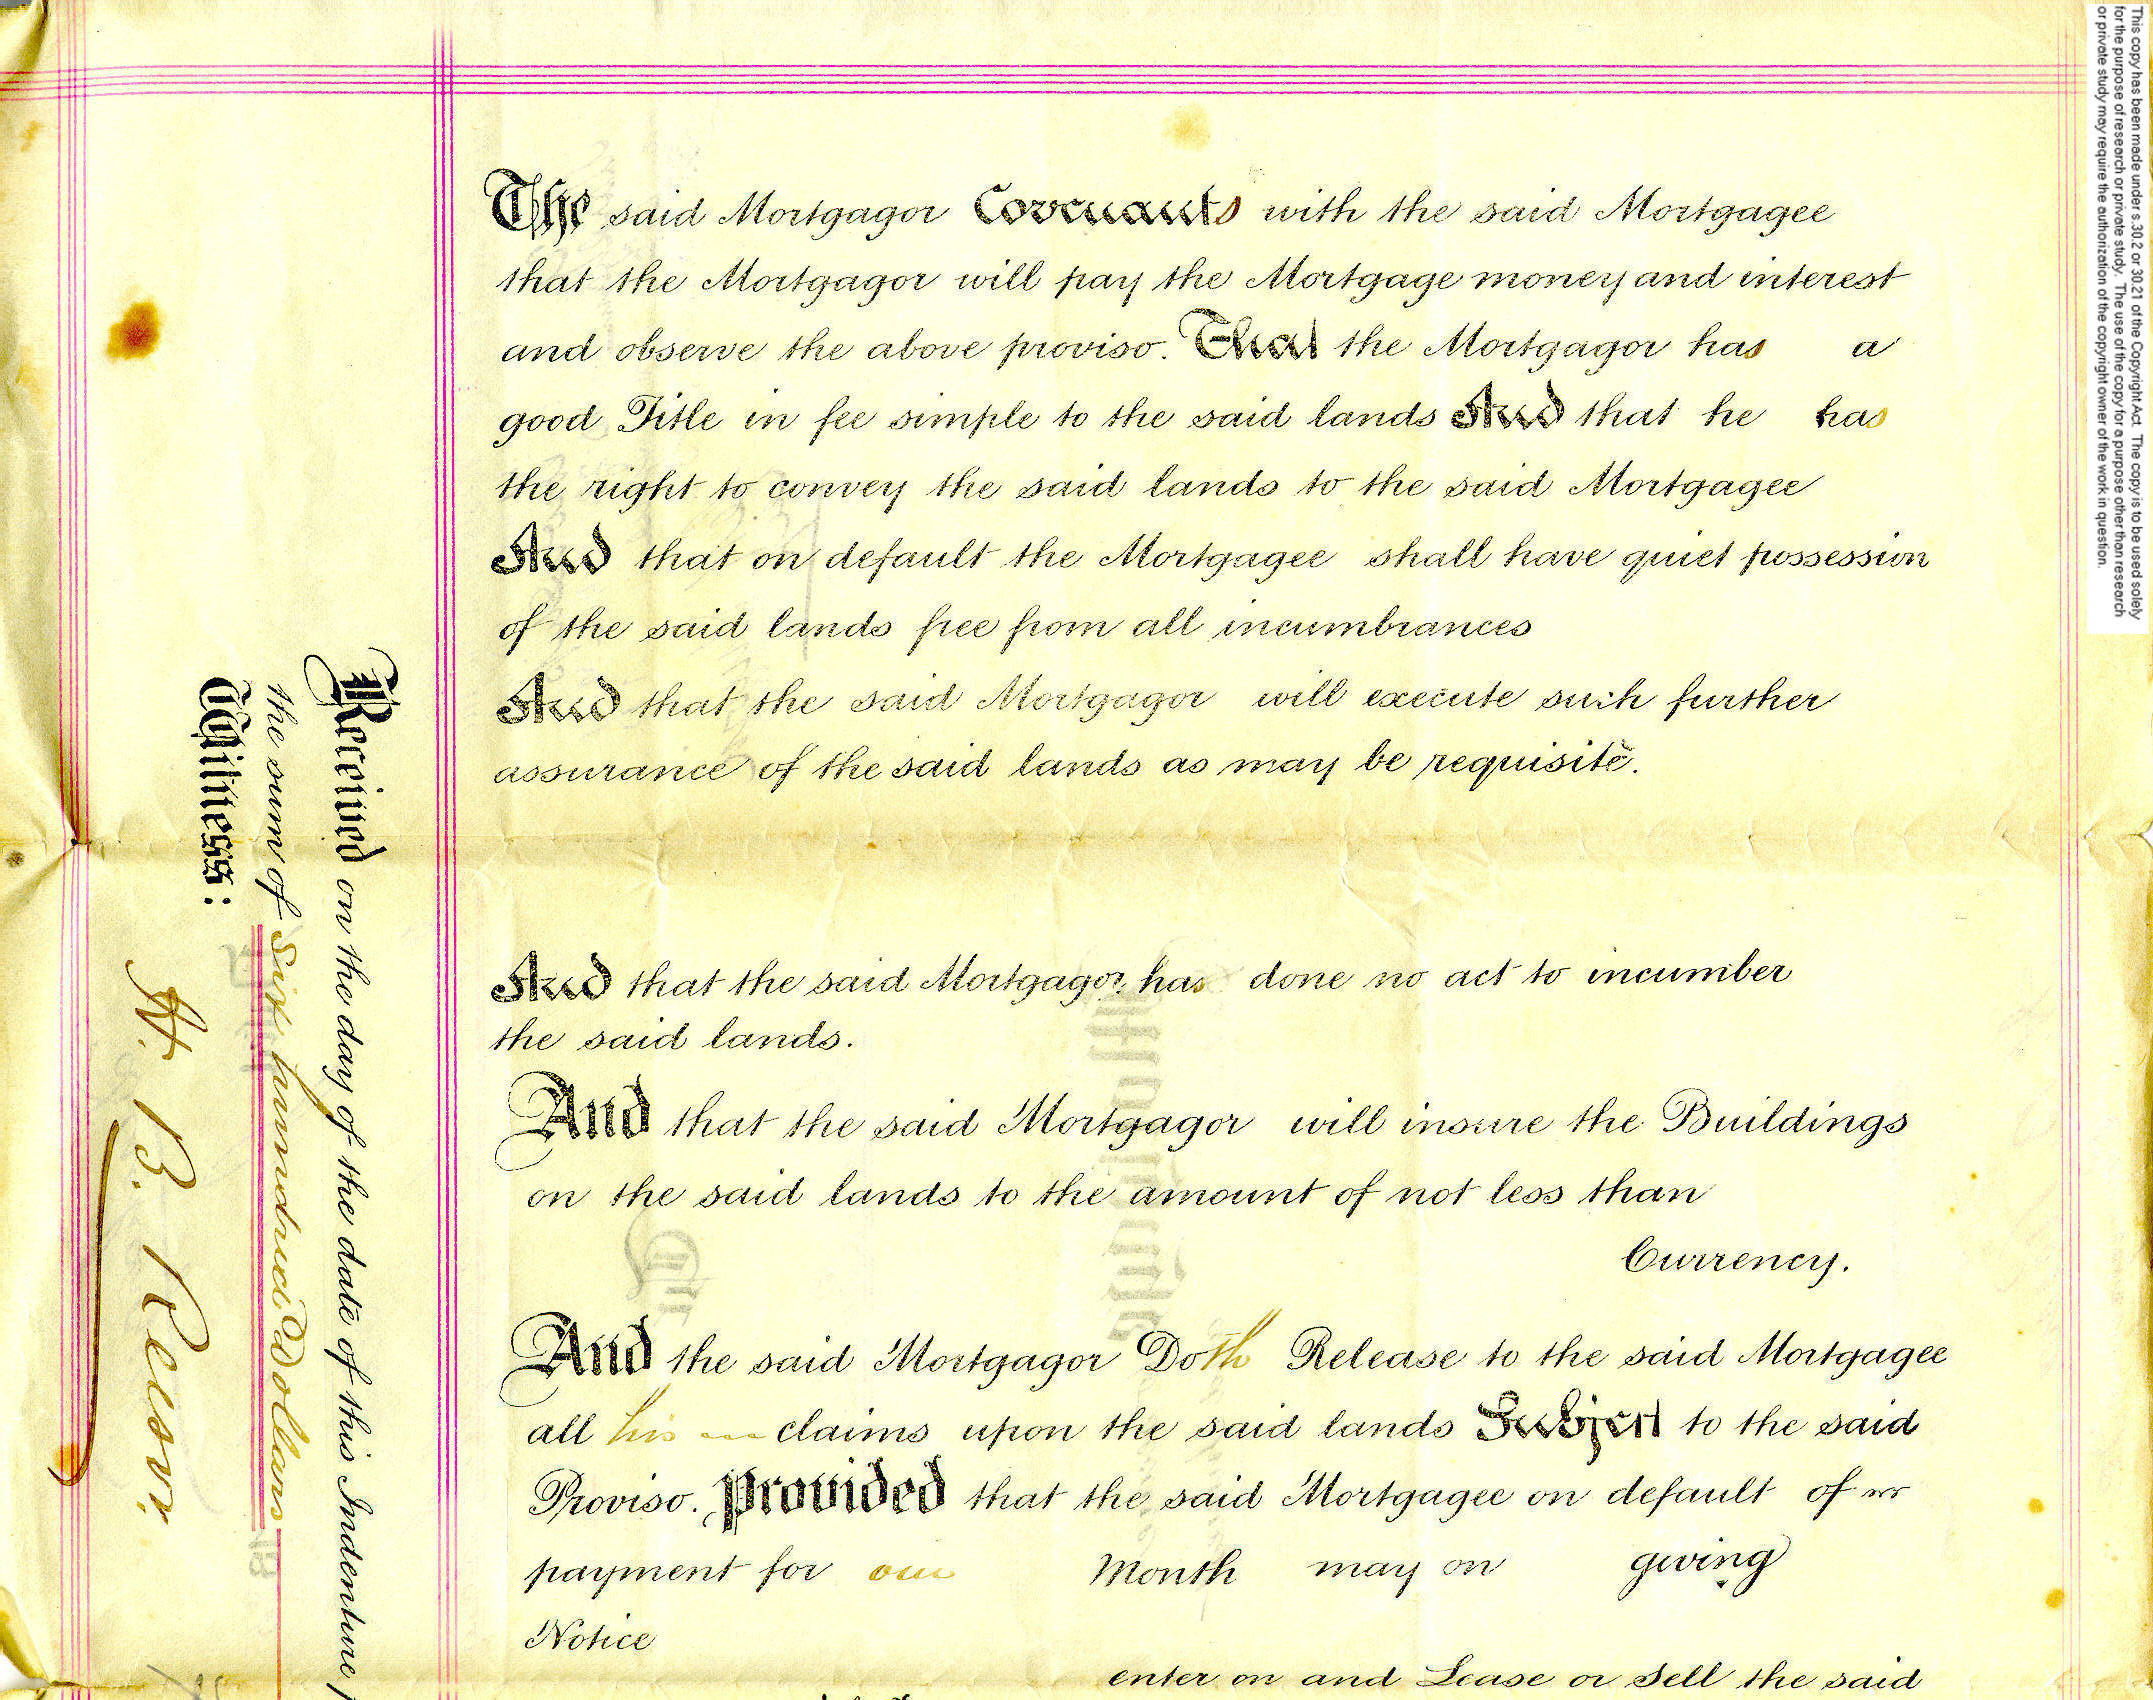 The said Mortgagor Covenants with the said Mortgagee
that the Mortgagor will pay the Mortgage money and interest
and observe the above proviso. That the Mortgagor has a
good Title in fee simple to the said lands And that he has
the right to convey the said lands to the said Mortgagee
And that on default the Mortgagee shall have quiet possession
of the said lands free from all incumbrances
And that the said Mortgagor will execute such further
assurance of the said lands as may be requisite.
And that the said Mortgagor has done no act to incumber
the said lands.
And that the said Mortgagor will insure the Buildings
on the said lands to the amount of not less than
Currency.
And the said Mortgagor Doth Release to the said Mortgagee
all his claims upon the said lands Subject to the said
Proviso. Provided that the said Mortgagee on default of
payment for one Month may on giving
Notice
enter on and Lease or Sell the said
Received on the day of the date of this Indenture
the sum of Six hundred Dollars
Witness:
H. B. Reesor.
This copy has been made under s.30.2 or 30.21 of the Copyright Act. The copy is to be used solely
for the purpose of research or private study. The use of the copy for a purpose other than research
or private study may require the authorization of the copyright owner of the work in question.